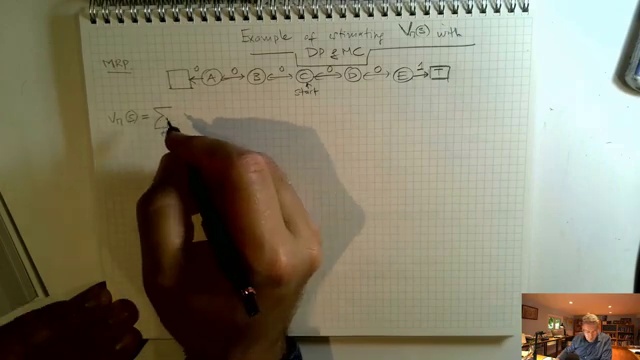 Example of estimating Vπ(s) with
DP & MC
MRP
0 A 0 B 0 C 0 D 0 E 1 T
↑
start
Vπ(s) = Σ